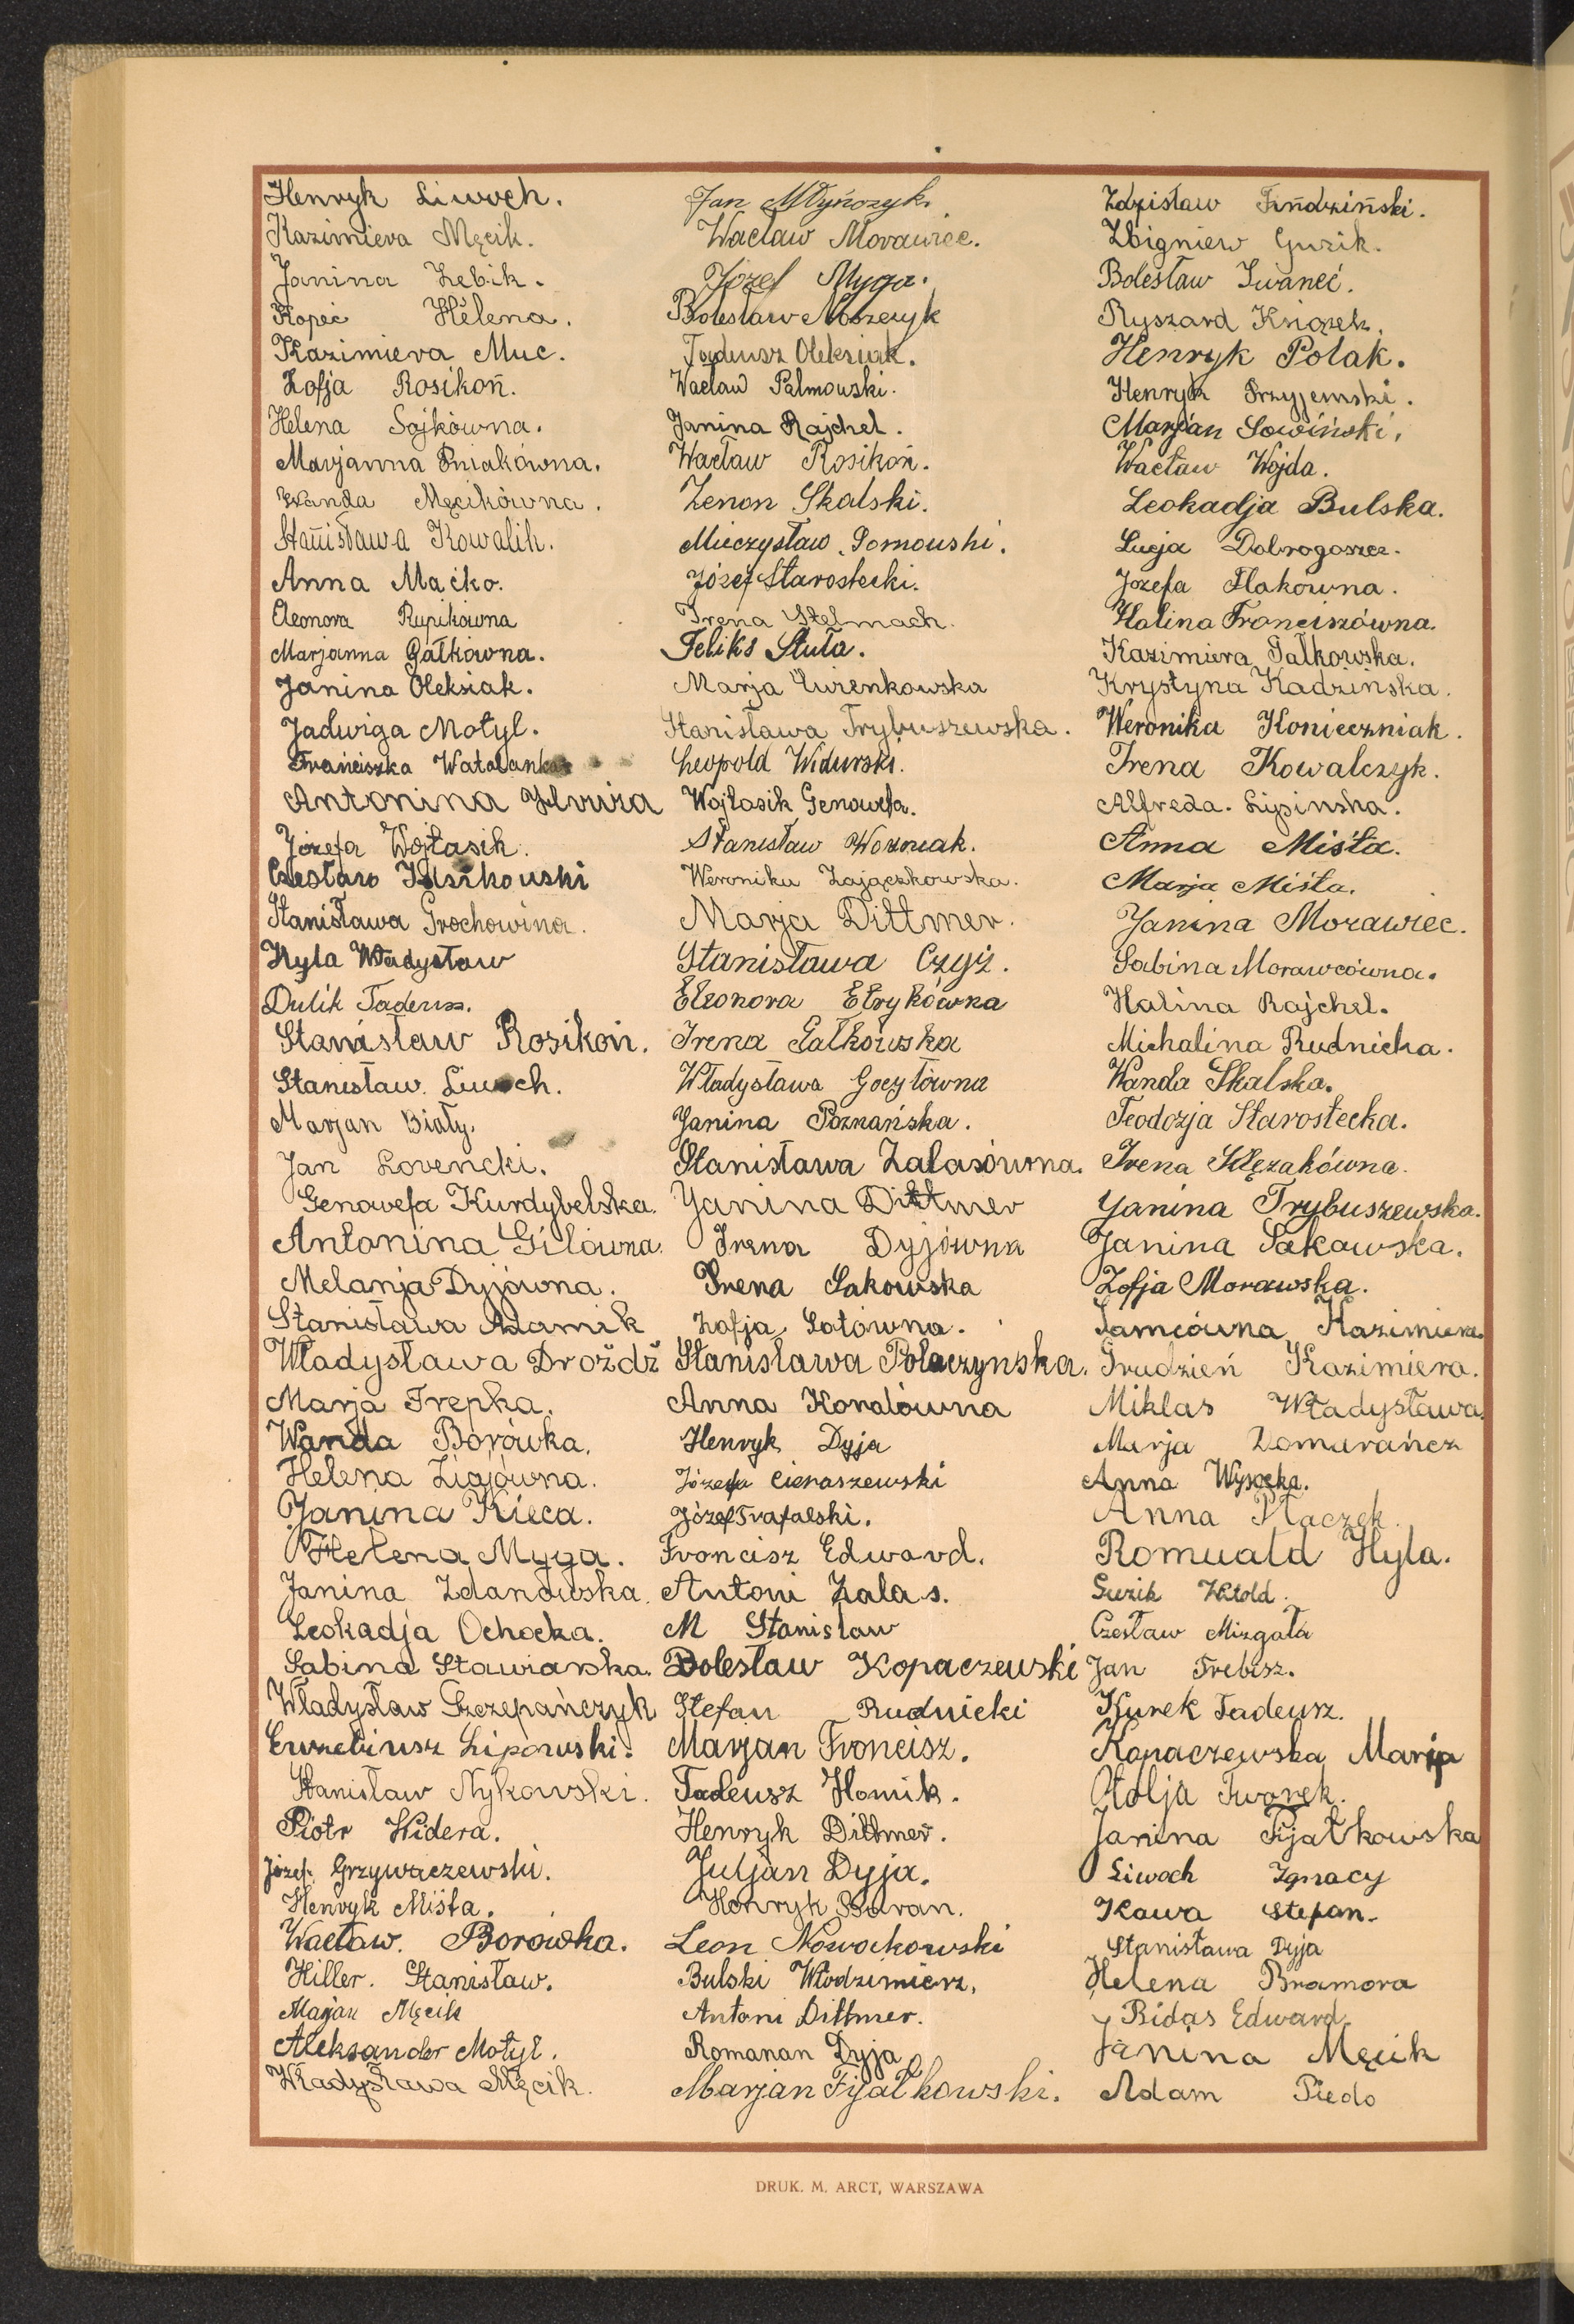 Henryk Liwoch.
Kazimiera Męcik.
Janina Zebik.
Kopeć Helena.
Kazimiera Muc.
Zofja Rosikoń.
Helena Sojkówna.
Marjanna Pniakówna.
Wanda Męcikówna.
Stanisława Kowalik.
Anna Maćko.
Eleonora Rupikówna
Marjanna Gałkówna.
Janina Oleksiak.
Jadwiga Motyl.
Franciszka
Antonina
Józefa Wojtasik.
Czesław
Stanisława Grochowina.
Hyla Władysław
Dulik Tadeusz.
Stanisław Rosikoń.
Stanisław Liwoch.
Marjan Biały.
Jan Lorencki.
Genowefa Kurdybelska.
Antonina Gilówna.
Melanja Dyjówna.
Stanisława Adamik
Władysława Drożdż
Marja Trepka.
Wanda Borówka.
Helena Ligjówna.
Janina Kieca.
Helena Myga.
Janina Zdanowska.
Leokadja Ochocka.
Sabina Stawiarska.
Władysław Szczepańczyk
Euzebiusz Lipowski.
Stanisław Nykowski.
Piotr Widera.
Józef Grzywaczewski.
Henryk Miśta.
Wacław. Borowka.
Hiller. Stanisław.
Marjan Męcik
Aleksander Motyl.
Władysława Męcik.
Jan Młyńczyk.
Wacław Morawiec.
Józef Myga.
Bolesław Noszczyk
Tadeusz Oleksiak.
Wacław Palmowski.
Janina Rajchel.
Wacław Rosikoń.
Zenon Skalski.
Mieczysław
Józef Starostecki.
Irena Stelmach.
Feliks Stuła.
Marja
Stanisława Trybuszewska.
Leopold Widurski.
Wojtasik Genowefa.
Stanisław Woźniak.
Weronika Zajączkowska.
Marja Dittmer.
Stanisława Czyż.
Eleonora Etrykówna
Irena Gałkowska
Władysława Gocyłówna
Janina Poznańska.
Stanisława Zalasówna.
Janina Dittmer
Irena Dyjówna
Irena Sakowska
Zofja Sotówna.
Stanisława Polaczynska.
Anna Koralówna
Henryk Dyja
Józefa Cieraszewski
Józef Trafalski.
Froncisz Edward.
Antoni Zalas.
M Stanisław
Bolesław Kopaczewski
Stefan Rudnicki
Marjan Froncisz.
Tadeusz Homik.
Henryk Dittmer.
Juljan Dyja.
Henryk Baran.
Leon Nowakowski
Bulski Włodzimierz.
Antoni Dittmer.
Romanan Dyja
Marjan Fijałkowski.
Zdzisław
Zbigniew Guzik.
Bolesław Iwaneć.
Ryszard Książek.
Henryk Polak.
Henryk Przyjemski.
Marjan Sowiński.
Wacław Wojda.
Leokadja Bulska.
Lucja Dobrogoszcz.
Józefa Flakówna.
Halina Franciszówna.
Kazimiera Gałkowska.
Krystyna Kadzińska.
Weronika Konieczniak.
Irena Kowalczyk.
Alfreda. Lipinska.
Anna Miśta.
Marja Miśta.
Janina Morawiec.
Sabina Morawcówna.
Halina Rajchel.
Michalina Rudnicka.
Wanda Skalska.
Teodozja Starostecka.
Irena Ślęzakówna.
Janina Trybuszewska.
Janina Sakowska.
Zofja Morawska.
Samcówna Kazimiera.
Grudzień Kazimiera.
Miklas Władysława.
Marja Domarańcz
Anna Wysocka.
Anna Płaczek.
Romuald Hyla.
Guzik Witold.
Czesław Mizgała
Jan Trebisz.
Kurek Tadeusz.
Kopaczewska Marja
Otolja Tworek.
Janina Fijałkowska
Liwoch Ignacy
Kawa Stefan.
Stanisława Dyja
Helena Bramora
Bidas Edward.
Janina Męcik
Adam Piedo
DRUK. M. ARCT, WARSZAWA